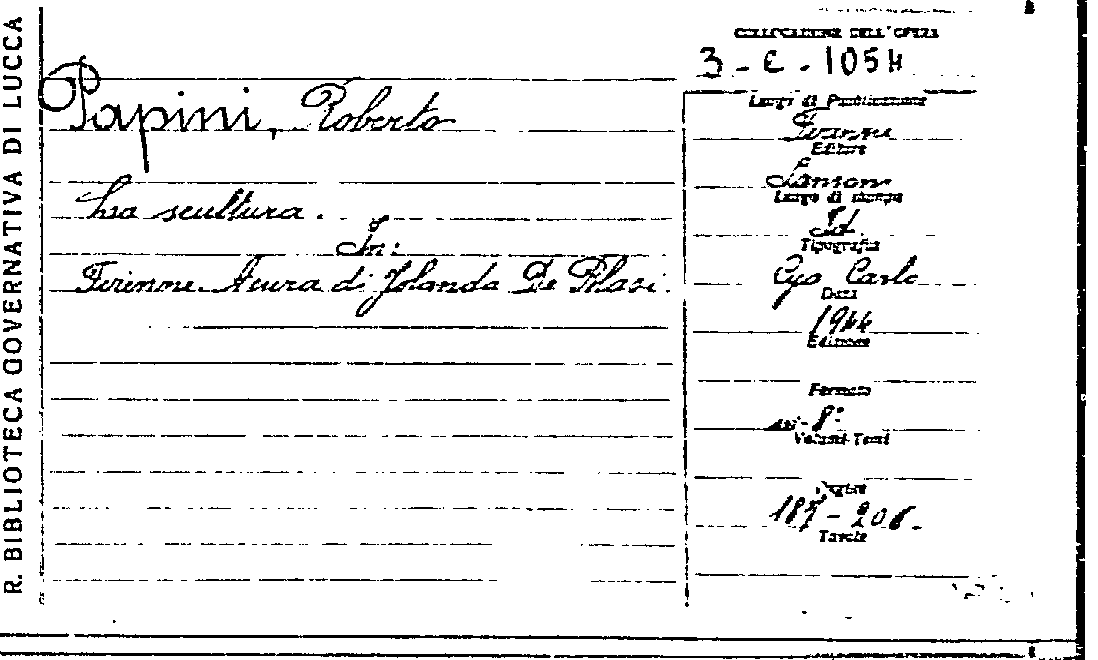 R. BIBLIOTECA GOVERNATIVA DI LUCCA
Papini, Roberto
La scultura.
In:
Firenze. A cura di Jolanda De Blasi.
COLLOCAZIONE DELL'OPERA
3 - C - 1054
Luogo di Pubblicazione
Firenze
Editore
Sansoni
Luogo di stampa
Id.
Tipografia
Carlo
Data
1944
Edizione
Formato
in-8°
Volumi-Tomi
Pagine
187 - 206.
Tavole